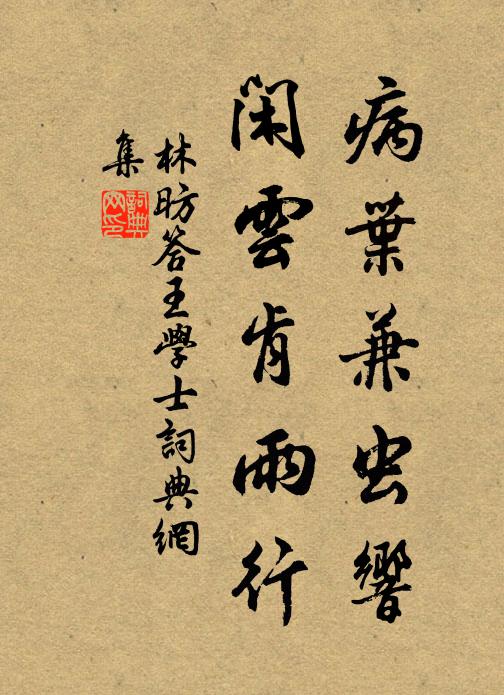 病葉兼虫響
閑雲肯雨行
林昉答王學士詞典網
集
詞典網印